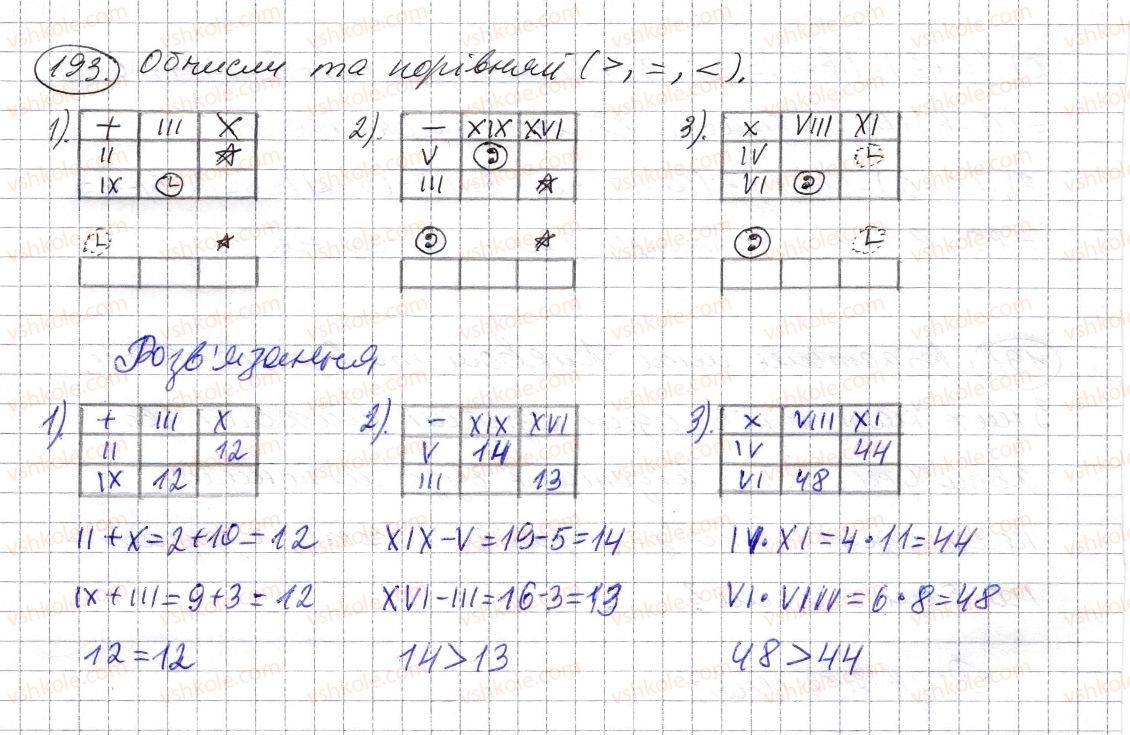 193. Обчисли та порівняй (>, =, <).
1). + III X
II
IX
2). – XIX XVI
V
III
3). x VIII XI
IV
VI
Розв'язання
1). + III X
II 12
IX 12
2). – XIX XVI
V 14
III 13
3). x VIII XI
IV 44
VI 48
II + X = 2 + 10 = 12
XIX – V = 19 – 5 = 14
IV · XI = 4 · 11 = 44
IX + III = 9 + 3 = 12
XVI – III = 16 – 3 = 13
VI · VIII = 6 · 8 = 48
12 = 12
14 > 13
48 > 44
vshkole.com